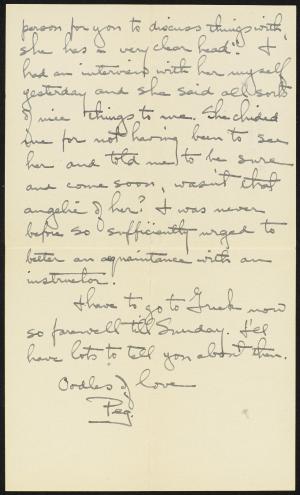 person for you to discuss things with,
she has a very clear head". I
had an interview with her myself
yesterday and she said all sorts
of nice things to me. She chided
me for not having been to see
her and told me to be sure
and come soon, wasn't that
angelic of her? I was never
before so sufficiently urged to
better an aquaintance with an
instructor.
I have to go to Greek now
so farewell till Sunday. I'll
have lots to tell you about then.
Oodles of love
Peg.